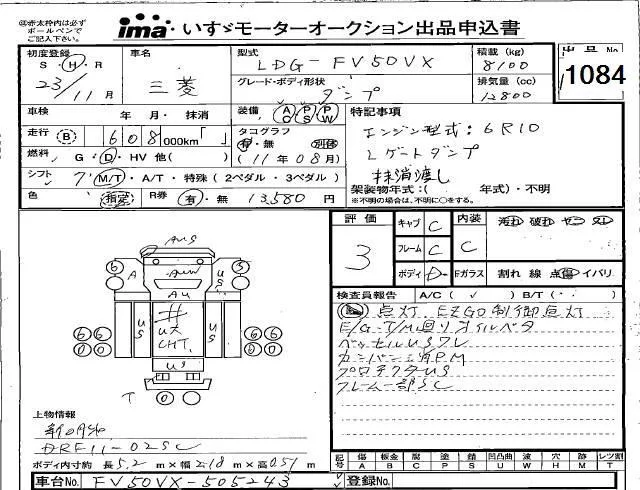 ※赤太枠内は必ず
ボールペンで
ご記入下さい。
ima いすゞモーターオークション出品申込書
初度登録 車名 型式 LDG-FV50VX 積載 (kg) 8100 出品No. 1084
S・H・R 23/11月 三菱 グレード・ボディ形状 ダンプ 排気量 (cc) 12800
車検 年 月・抹消 装備 AC PS PW 特記事項
走行 B 608,000km「 」 タコグラフ 有・無 別体 エンジン型式:6R10
燃料 G・D・HV 他( ) (11年08月) Lゲートダンプ
シフト 7 M/T・A/T・特殊 (2ペダル・3ペダル) 抹消渡し
色 指定 R券 有・無 13,580円 架装物年式:( 年式)・不明
※不明の場合は、不明に○をする。
評価 キャブ C 内装 汚れ 破れ ヤニ スレ
3 フレーム C C
ボディ D Fガラス 割れ 線 点傷 イバリ
検査員報告 A/C( ✓ ) B/T(・・)
点灯 EZGO制御点灯
E/G T/M廻リオイルベタ
ベッセルUSワレ
カンバン消PM
プロテクタUS
フレーム一部SC
AUS
6 A AUW US 5
AU
6 6 US # US 6 6
US
CHT
US
T 0 0
上物情報
新明和
DRF11-02SC
ボディ内寸約 長5.2m×幅2.18m×高0.51m
記号 傷 板金 腐 塗 錆 凹凸曲 波 穴 跡 レツ割
A B C P S U W H M T
車台No. FV50VX-505243 登録No.